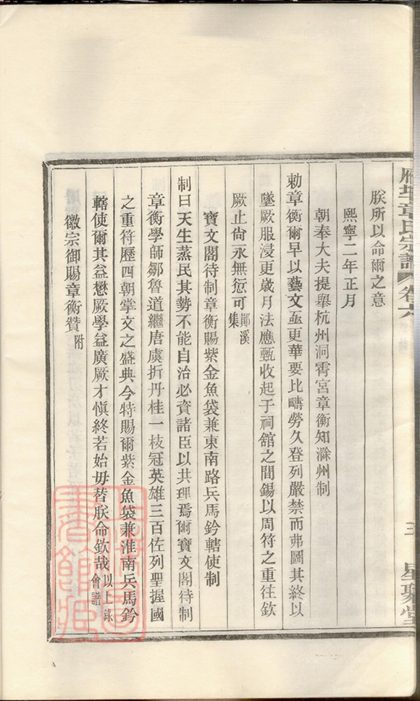 朕所以命爾之意
熙寧二年正月
朝奉大夫提舉杭州洞霄宮章衡知滁州制
勅章衡爾早以藝文亟更華要比疇勞久登列嚴禁而弗圖其終以
墜厥服浸更歲月法應甄收起于祠館之間錫以周符之重往欽
厥止尙永無愆可 鄖溪集
寶文閣待制章衡賜紫金魚袋兼東南路兵馬鈐轄使制
制曰天生蒸民其勢不能自治必資諸臣以共理焉爾寶文閣待制
章衡學師鄒魯道繼唐虞折丹桂一枝冠英雄三百佐列聖握國
之重符歷四朝掌文之盛典今特賜爾紫金魚袋兼淮南兵馬鈐
轄使爾其益懋厥學益廣厥才愼終若始毋替朕命欽哉 以上錄會譜
徽宗御賜章衡贊 附
章氏宗譜 卷六